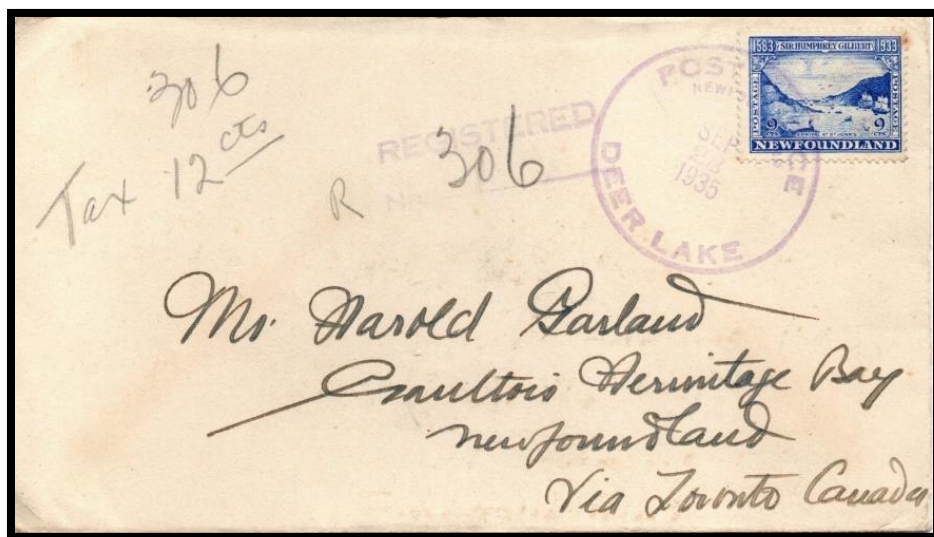 306
Tax 12 cts
REGISTERED
R 306
POST
NEWF
SEP
1935
DEER LAKE
1583 SIR HUMPHREY GILBERT 1933
POSTAGE POSTAGE
9 9
NEWFOUNDLAND
Mr. Harold Garland
Gaultois Hermitage Bay
Newfoundland
Via Toronto Canada